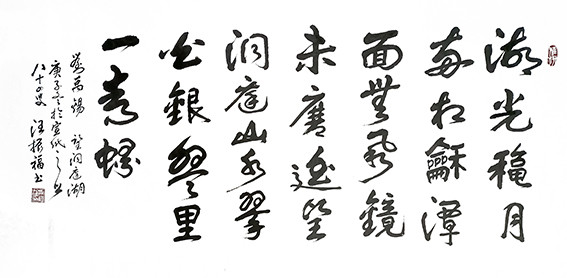 湖光穐月
兩相龢潭
面無風鏡
未磨遥望
洞庭山水翠
白銀盤里
一青螺
劉禹锡 望洞庭湖
庚子冬於宣纸之乡
八十叟 汪福书